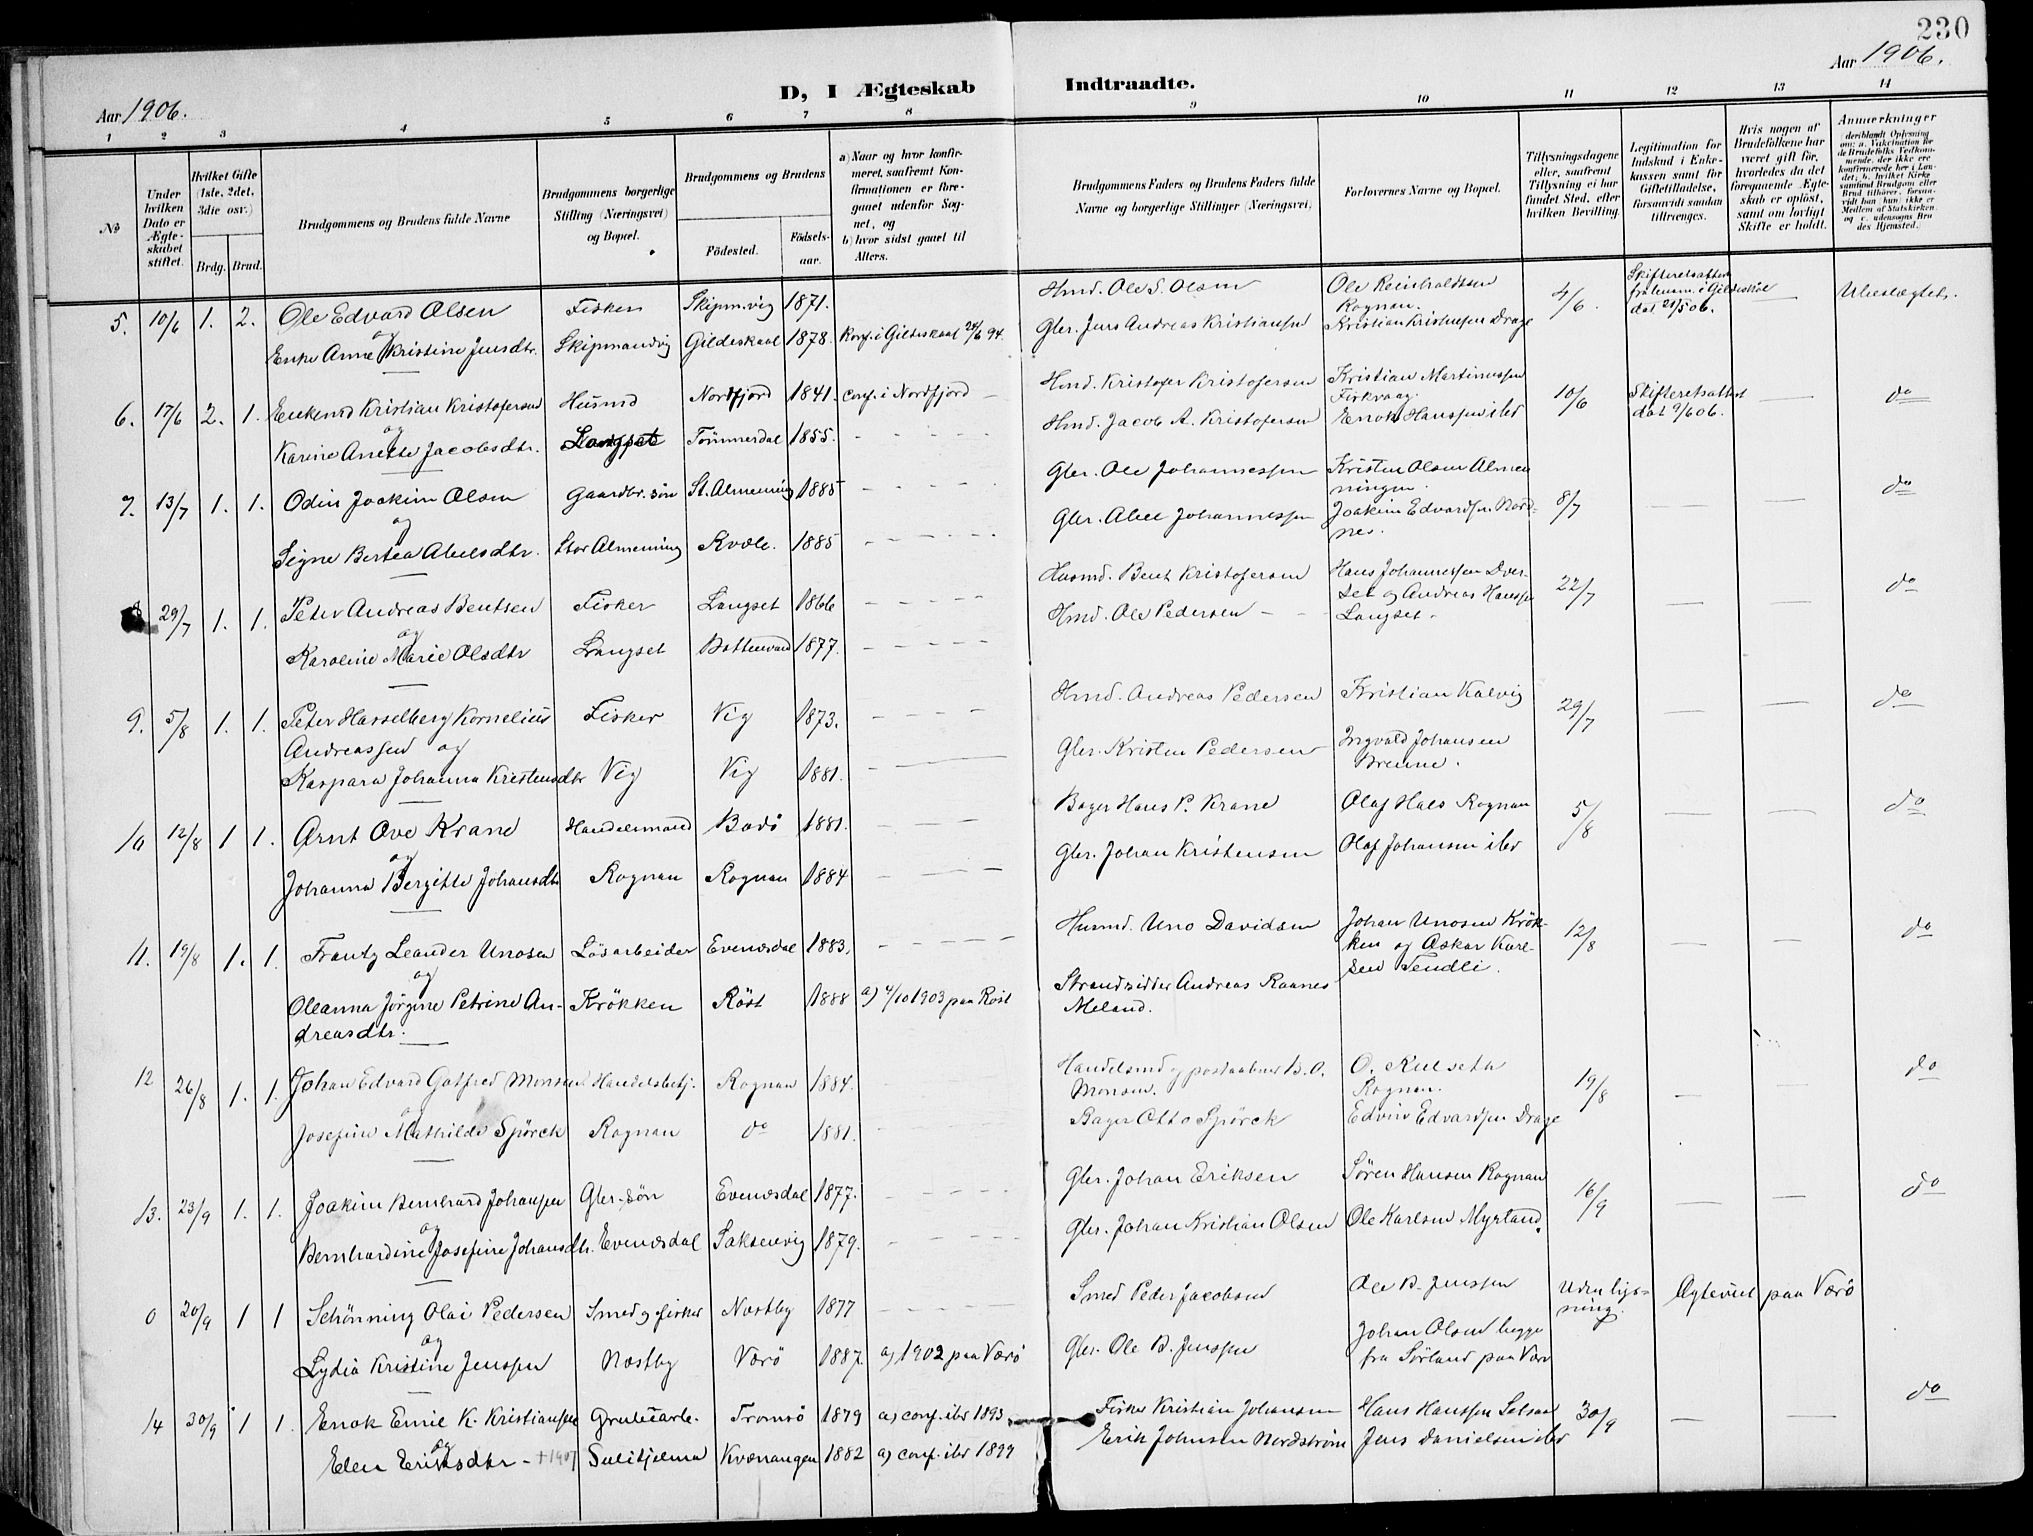 230
Aar 1906.
Aar 1906.
D, I Ægteskab Indtraadte.
1 2 3 4 5 6 7 8 9 10 11 12 13 14
No
Under hvilken Dato er Ægteskabet stiftet.
Hvilket Gifte (1ste, 2det, 3die osv.)
Brdg. Brud.
Brudgommens og Brudens fulde Navne
Brudgommens borgerlige Stilling (Næringsvei) og Bopæl.
Brudgommens og Brudens
Födested.
Födsels-aar.
a) Naar og hvor konfirmeret, saafremt Konfirmationen er foregaaet udenfor Sognet, og
b) hvor sidst gaaet til Alters.
Brudgommens Faders og Brudens Faders fulde Navne og borgerlige Stillinger (Næringsvei)
Forlovernes Navne og Bopæl.
Tillysningsdagene eller, saafremt Tillysning ei har fundet Sted, efter hvilken Bevilling.
Legitimation for Indskud i Enkekassen samt for Giftetilladelse, forsaavidt saadan tiltrænges.
Hvis nogen af Brudefolkene har været gift før, hvorledes da det foregaaende Ægteskab er oplöst, samt om lovligt Skifte er holdt.
Anmærkninger
5. 10/6 1. 2. Ole Edvard Olsen Fisker Skipm.vig 1871. Hmd. Ole S. Olsen Ole Reinholdtsen Rognan. 4/6. Skifteretsattest fra lensm. i Gildeskaal dat 21/5 06. — Ubeslægtet.
og
Enke Anne Kristine Jensdtr. Skipmandvig Gildeskaal 1878. Konf. i Gildeskaal 24/6 94. Gbr. Jens Andreas Kristiansen Kristian Kristensen Drage
6. 17/6 2. 1. Enkemd Kristian Kristofersen Husmd Nordfjord 1841. conf. i Nordfjord — Hmd. Kristofer Kristofersen Kristian Martinussen 10/6 Skifteretsattest dat 9/6 06. do
og
Karine Anette Jacobsdtr. Langset Tömmerdal 1855. Hmd. Jacob A. Kristofersen Enok Hanssen ibd
7. 13/7 1. 1. Odin Joakim Olsen Gaardbr. sön St. Almenning 1885 Gbr. Ole Johannessen Kristen Olsen Almenningen. 8/7 — — do
og
Signe Bertea Abelsdtr. Stor Almenning Kvæle. 1885 Gbr. Abel Johannessen Joakim Edvardsen Nordnes.
8 29/7 1. 1. Peter Andreas Bentsen Fisker Langset 1866 Husmd. Bent Kristofersen Hans Johannessen Dverset og Andreas Hanssen Langset. 22/7 — — do
og
Karoline Marie Olsdtr Langset Bottenvand 1877. Hmd. Ole Pedersen
9. 5/8 1. 1. Peter Hasselberg Kornelius Andreassen og Fisker Vig 1873. Hmd. Andreas Pedersen Kristian Kalvig 29/7 — — do
Kaspara Johanna Kristensdtr Vig Vig 1881. Gbr. Kristen Pedersen Ingvald Johansen Brenne.
10 12/8 1 1. Arnt Ove Krane Handelsmand Bodö 1881. Bager Hans P. Krane Olaf Hals Rognan 5/8 — — do
og
Johanna Bergitte Johansdtr Rognan Rognan 1884 Gbr. Johan Kristensen Olaf Johansen ibd
11. 19/8 1. 1. Frantz Leander Unosen Lösarbeider Evenæsdal 1883. Husmd. Uno Davidsen Johan Unosen Krökken og Oskar Karlsen Tendli. 12/8 — — do
og
Oleanna Jörgine Petrine Andreasdtr. Krökken Röst 1888 a) 4/10 1903 paa Röst Strandsidder Andreas Raanes Meland.
12 26/8 1. 1. Johan Edvard Gotfred Monsen. Handelsbetj. Rognan 1884. Handelsmd og postaabner B. O. Monsen. O. Kulseth Rognan. 19/8 — — do
og
Josefine Mathilde Spörck Rognan do 1881. Bager Otto Spörck Edvin Edvardsen Drage
13. 23/9 1. 1. Joakim Bernhard Johansen Gbr. sön Evenæsdal 1877. Gbr. Johan Eriksen Sören Hansen Rognan 16/9 — — do
og
Bernhardine Josefine Johansdtr. Evenæsdal Saksenvig 1879. Gbr. Johan Kristian Olsen Ole Karlsen Myrland.
0 20/9 1 1 Schönning Olai Pedersen Smed og fisker Næstby 1877 Smed Peder Jacobsen Ole B. Jenssen Uden lysning. Ægteviet paa Værö
og
Lydia Kristine Jenssen Næstby Værö 1887. a) 1902 paa Værö Gbr. Ole B. Jenssen Johan Olsen begge fra Sörland paa Værö
14 30/9 1 1. Enok Emil K. Kristianssen Grubearb. Tromsö 1879 a) conf. ibd 1893. Fisker Kristian Johansen Hans Hanssen Setsaa 30/9 — — do
og
Elen Eriksdtr — +1907 Sulitjelma Kvænangen 1882 a) conf. ibd 1899 Erik Johnsen Nordström Jens Danielsen ibd